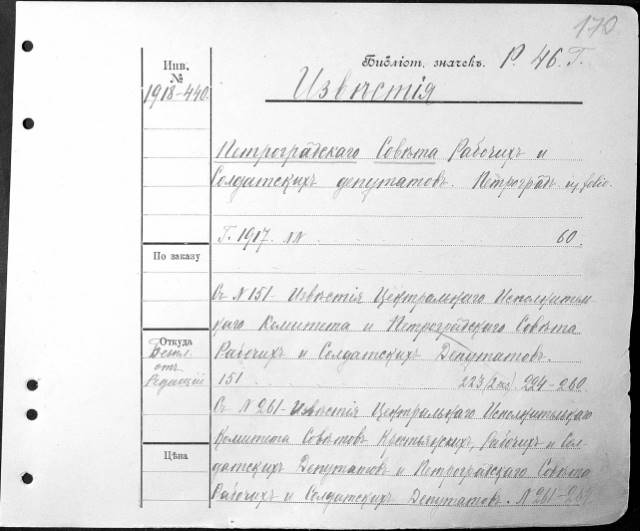 170
Библіот. значекъ. Р. 46. Г.
Инв. №
1918-440.
Извѣстія
Петроградскаго Совѣта Рабочихъ и
Солдатскихъ депутатовъ. Петроградъ. folio.
Г. 1917. NN 60.
По заказу
Съ N 151 - Извѣстія Центральнаго Исполнитель-
наго Комитета и Петроградскаго Совѣта
Откуда
Безпл. отъ Редакціи
Рабочихъ и Солдатскихъ Депутатовъ.
151 223 (2 экз) 224-260.
Съ N 261 - Извѣстія Центральнаго Исполнительнаго
Комитета Совѣтовъ Крестьянскихъ, Рабочихъ и Сол-
Цѣна
датскихъ Депутатовъ и Петроградскаго Совѣта
Рабочихъ и Солдатскихъ Депутатовъ. N 261-